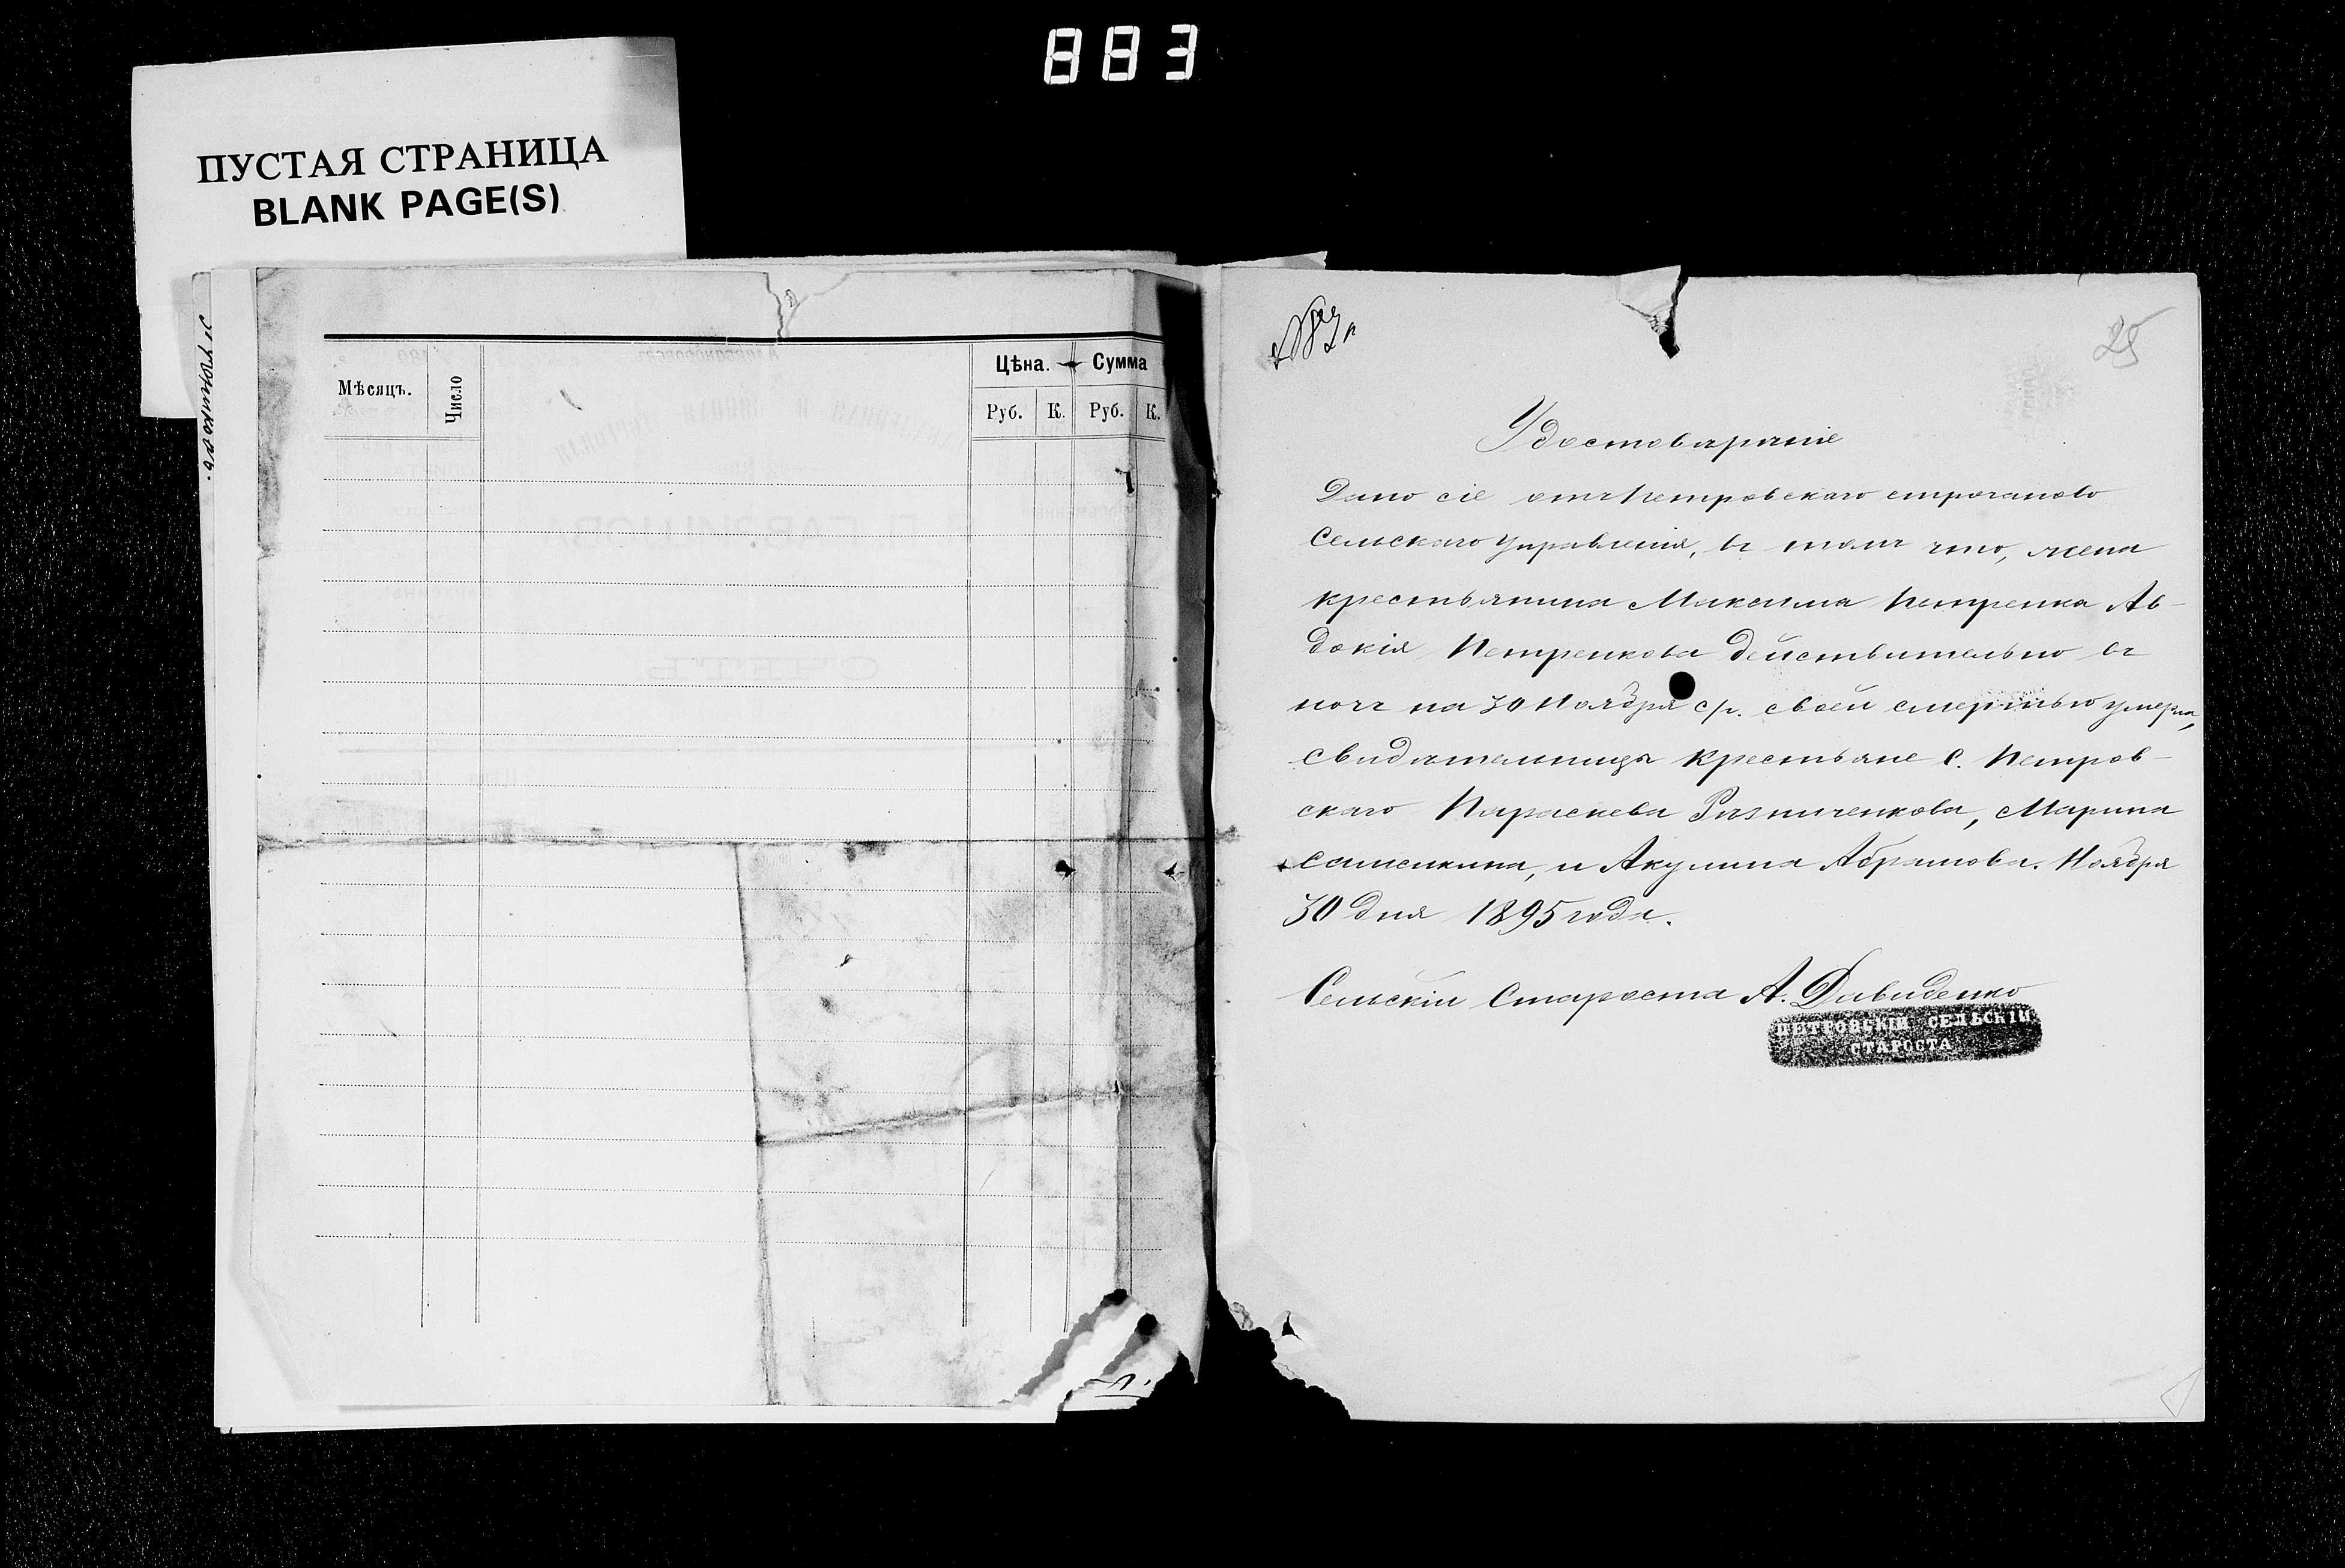 883
ПУСТАЯ СТРАНИЦА
BLANK PAGE(S)
Мѣсяцъ.
Число
Цѣна.
Сумма
Руб.
К.
Руб.
К.
25
Удостоверение
Дано сіе отъ Петровскаго
Сельскаго Управленія, въ томъ что, жена
крестьянина Максима Петренка Ав-
докія Петренкова действительно въ
ночъ на 30 Ноября с/г. своей смертью умерла,
свидетельницы крестьяне с. Петров-
скаго Параскева Резниченкова, Марина
и Акулина Абрамова. Ноября
30 дня 1895 года.
Сельскій Староста А. Давиденко
ПЕТРОВСКІЙ СЕЛЬСКІЙ
СТАРОСТА